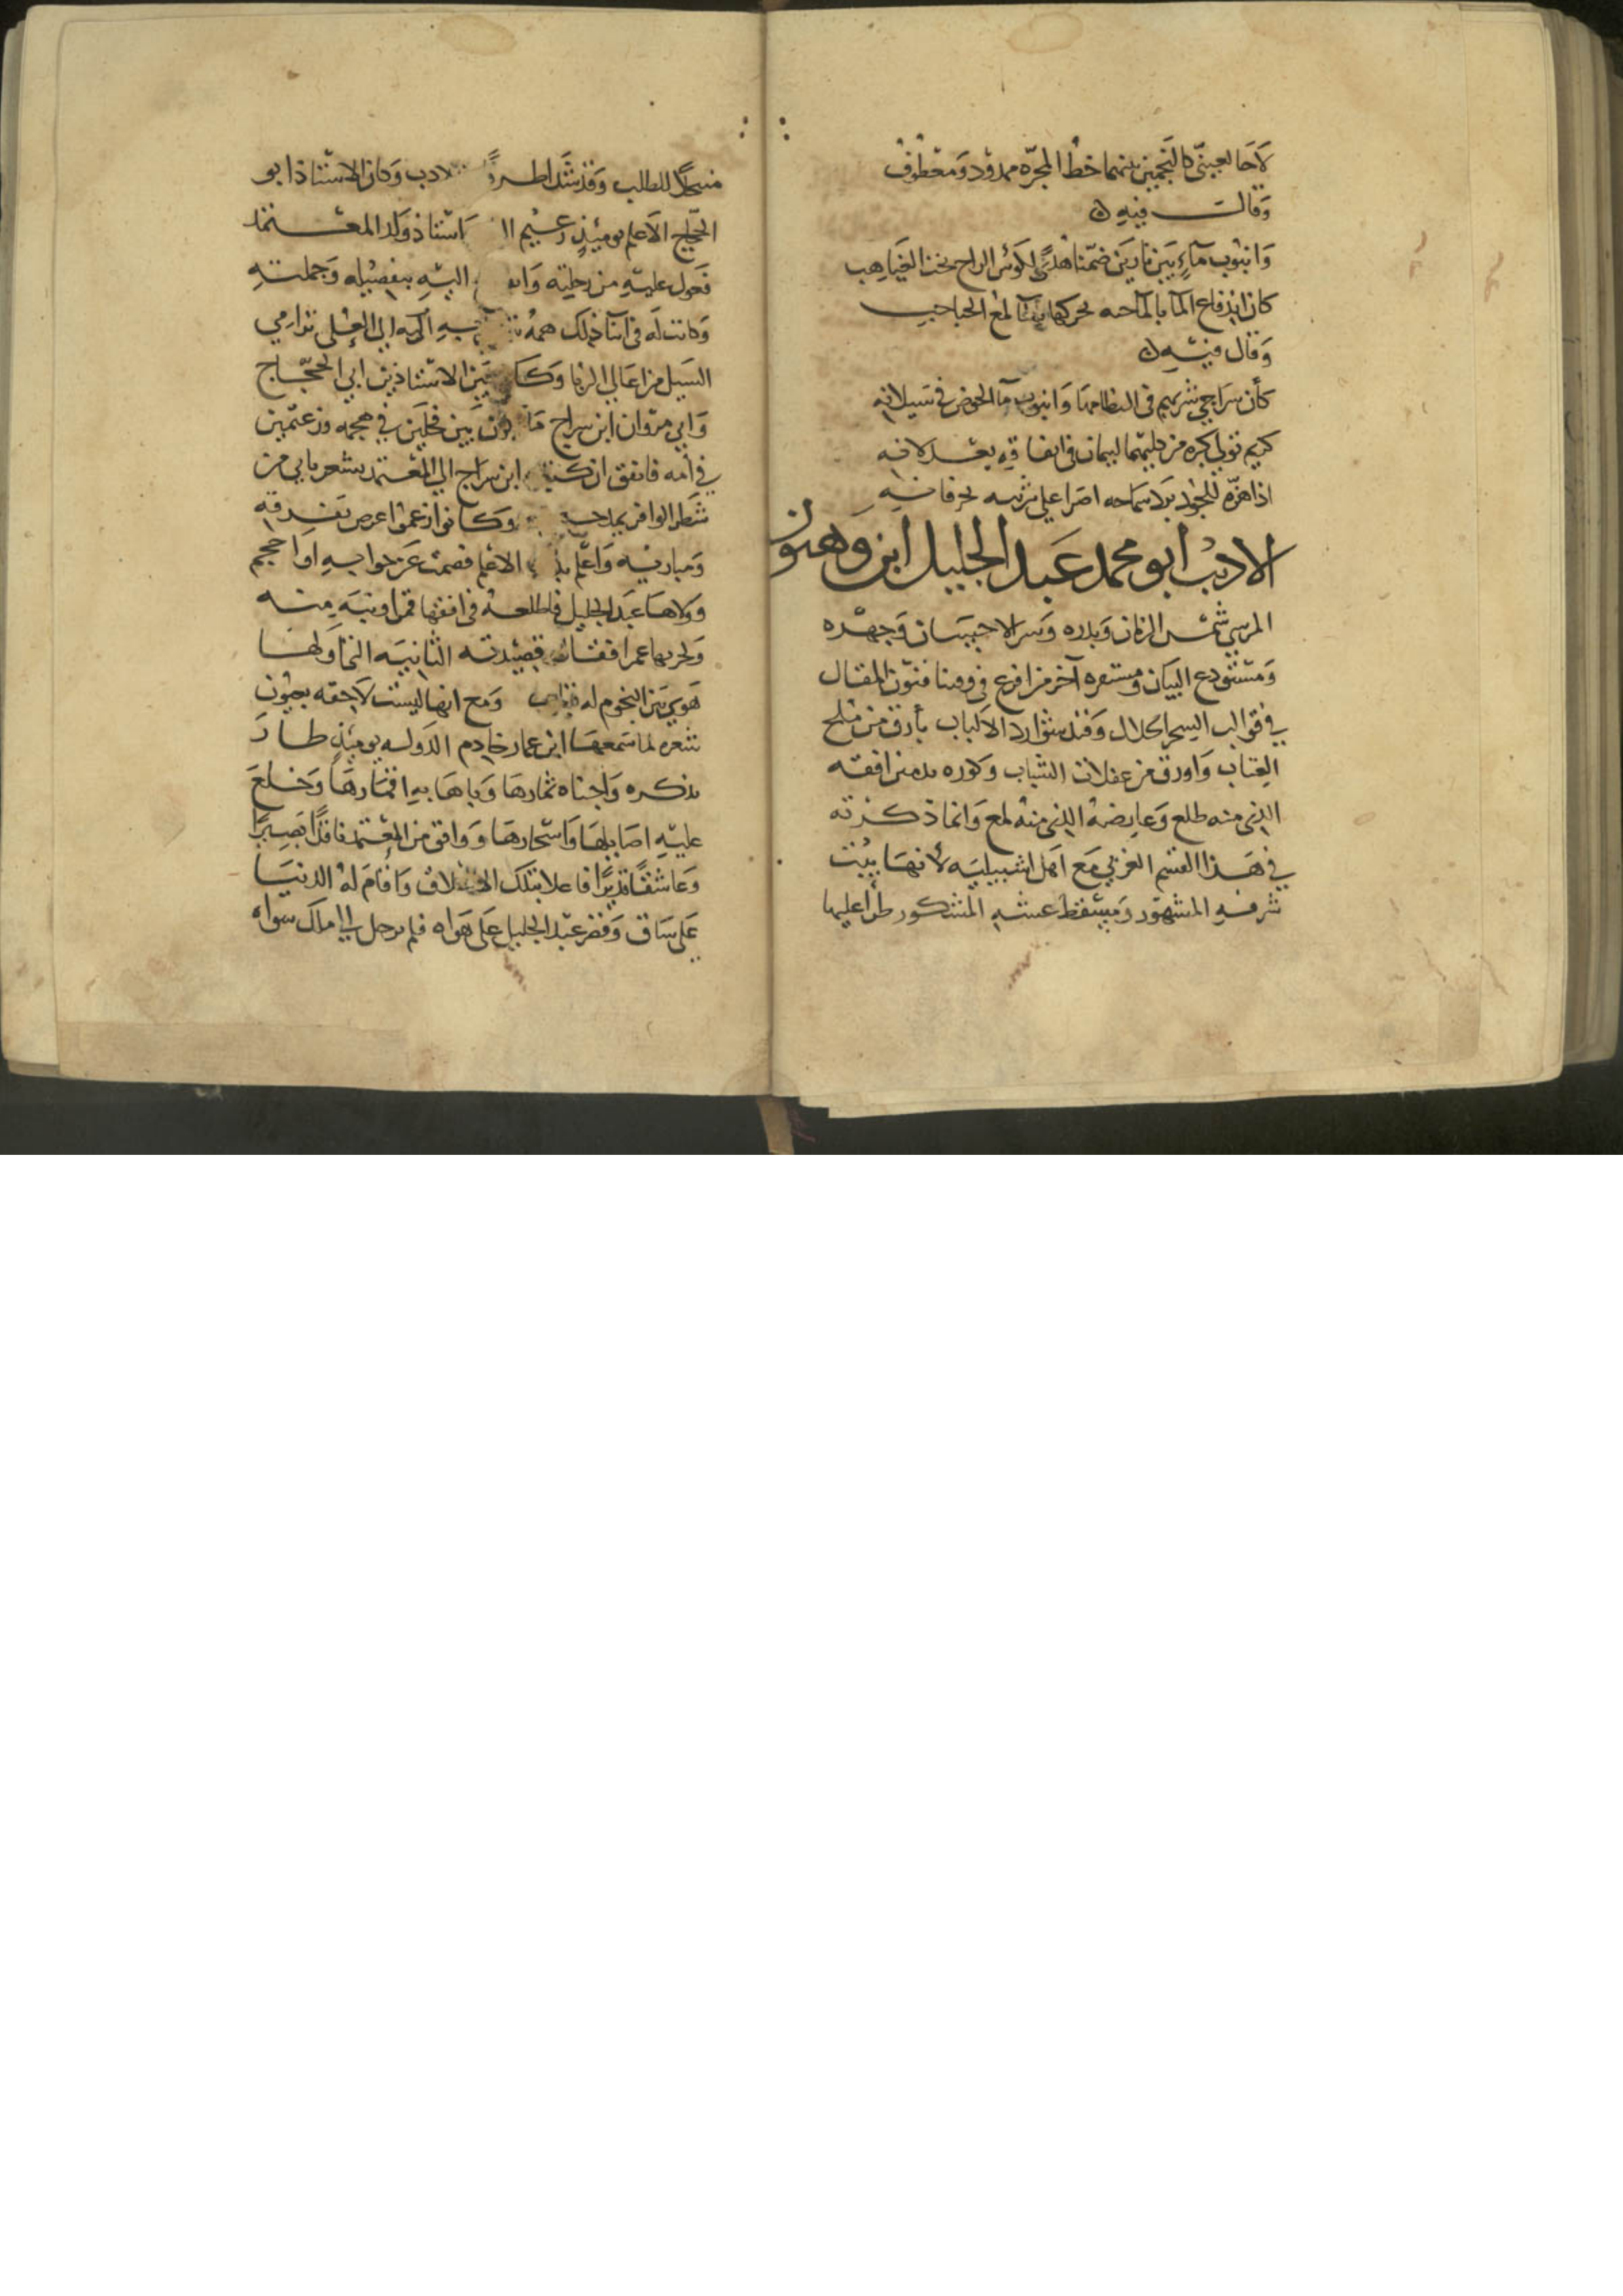 لاحا لعيني كالنجمين بينهما خط المجره ممدود ومعطوف
وقال فيه
وانبوب ماء بين نارين ضمنا هدى لكؤس الراح تحت الغياهب
كان اندفاع الما بالما حيه يحركها لمع الحباحب
وقال فيه
كأن سراجي شربهم في التظاهما وانبوب ما الحوض في سيلانه
كريم تولى كبره من كليهما لئيمان في انفاقه يعذلانه
اذا هزه للجود بدا سماحه اصرا على
الاديب ابو محمد عبد الجليل ابن وهبون
المرسي شمس الزمان وبدره وسر الاحسان وجهره
ومستودع البيان ومستقره آخر من افرغ في وقتنا فنون المقال
في قوالب السحر الحلال وقيد شوارد الالباب بأرق من ملح
العتاب واورق من غفلات الشباب وكوره تدمير افقه
الذي منه طلع وعارضه الذي منه لمع وانما ذكرته
في هذا القسم الغربي مع اهل اشبيليه لأنها بيت
شرفه المشهور ومسقط عيشه المشكور طرأ عليها
منتحلا للطلب وقد شدا طرفا الادب وكان الاستاذ ابو
الحجاج الاعلم يومئذ زعيم استاذ ولد المعتمد
فعول عليه من رحلته اليه بتفصيله وجملته
وكانت له في اثنا ذلك همه به اكمه الى العلى ترامي
السيل من اعالي الربا وكان بين الاستاذين ابي الحجاج
وابي مروان ابن سراج ما يكون بين فحلين في هجمه وزعيمين
في أمه فاتفق ان كتب ابن سراج الى المعتمد بشعر بابي من
شطر الوافر يمدحه وكانوا زعموا
ومباريه واعلم الاعلم فصمت عن جوابه او احجم
وولاها عبد الجليل فاطلعه في افقها قمرا ونبه منه
ولحربها عمرا فقال قصيدته الثانيه التي اولها
هوى بين النجوم له ومع انها ليست لاحقه بعيون
شعره لما سمعها ابن عمار خادم الدوله يومئذ طار
بذكره واجناه ثمارها وباهى به اقمارها وخلع
عليه اصايلها واسحارها ووافق من المعتمد ناقدا بصيرا
وعاشقا قديرا فاعلا بتلك وأقام له الدنيا
على ساق وقصر عبد الجليل على هواه فلم يرحل الى املاك سواه